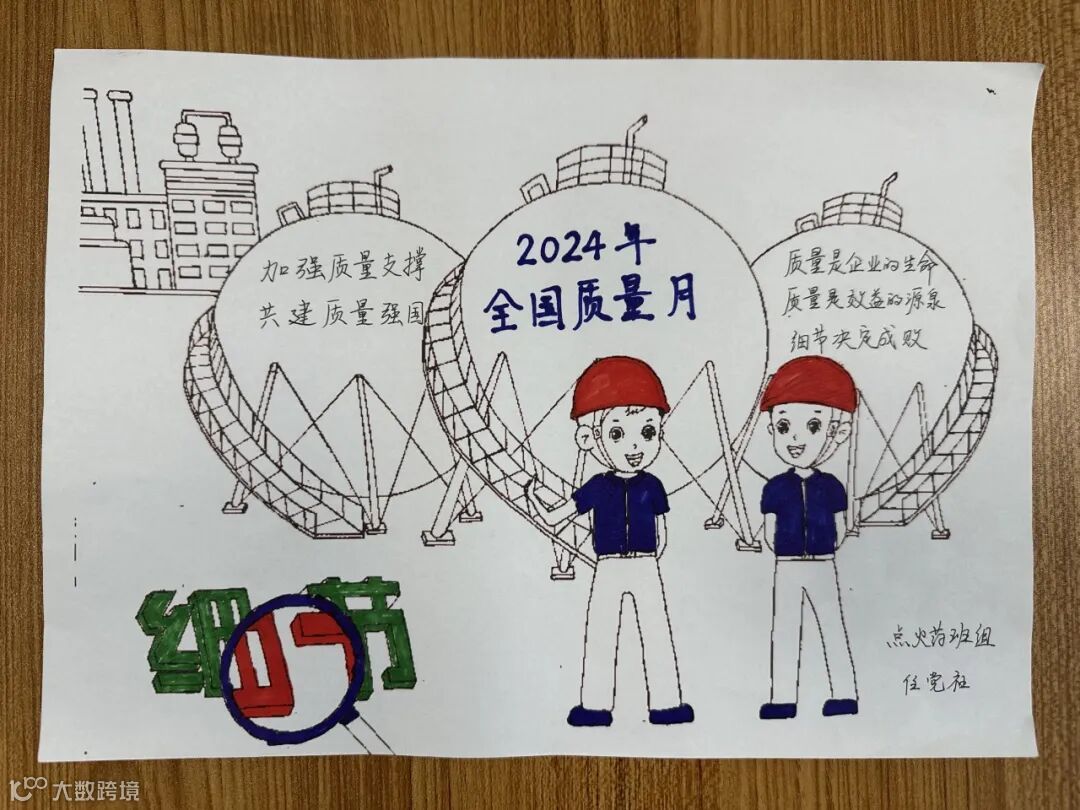 加强质量支撑
共建质量强国
2024年
全国质量月
质量是企业的生命
质量是效益的源泉
细节决定成败
细节
点火药班组
任党社
大数跨境